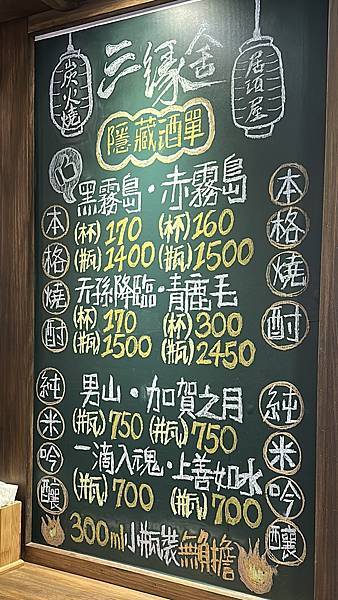 炭火燒
三緣舍
居酒屋
隱藏酒單
黑霧島・赤霧島
(杯)170 (杯)160
(瓶)1400 (瓶)1500
天孫降臨・青鹿毛
(杯)170 (杯)300
(瓶)1500 (瓶)2450
本格燒酎
本格燒酎
男山・加賀之月
(瓶)750 (瓶)750
一滴入魂・上善如水
(瓶)700 (瓶)700
純米吟釀
純米吟釀
300ml小瓶裝無負擔